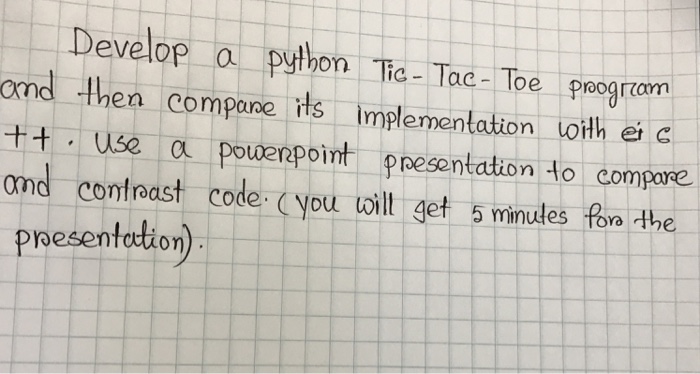 Develop a python Tic-Tac-Toe program
and then compare its implementation with ei c
++. Use a powerpoint presentation to compare
and contrast code. (you will get 5 minutes for the
presentation).